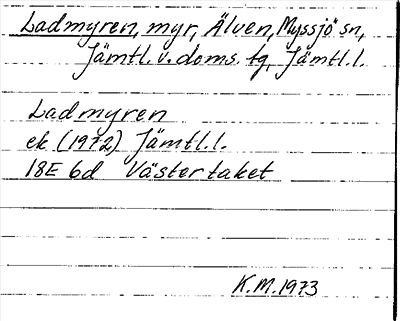 Ladmyren, myr, Älven, Myssjö sn,
Jämtl. v. doms. tg, Jämtl.l.
Ladmyren
ek (1972) Jämtl.l.
18E 6d Västertaket
K.M. 1973